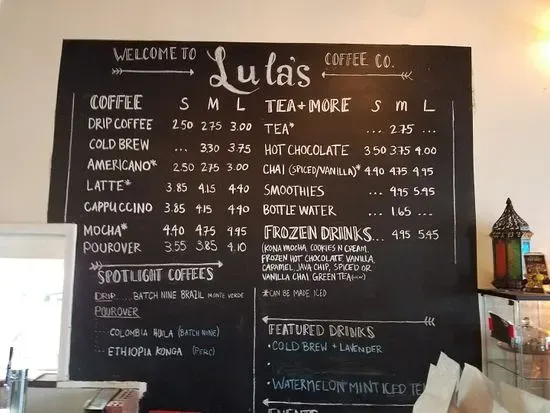 WELCOME TO Lula's COFFEE CO.
COFFEE S M L
DRIP COFFEE 2.50 2.75 3.00
COLD BREW ... 3.30 3.75
AMERICANO* 2.50 2.75 3.00
LATTE* 3.85 4.15 4.40
CAPPUCCINO 3.85 4.15 4.40
MOCHA* 4.40 4.75 4.95
POUROVER 3.55 3.85 4.10
SPOTLIGHT COFFEES
DRIP.....BATCH NINE BRAZIL MONTE VERDE
POUROVER
COLOMBIA HUILA (BATCH NINE)
ETHIOPIA KONGA (PERC)
TEA + MORE S M L
TEA* ... 2.75 ...
HOT CHOCOLATE 3.50 3.75 4.00
CHAI (SPICED/VANILLA)* 4.40 4.75 4.95
SMOOTHIES ... 4.95 5.45
BOTTLE WATER ... 1.65 ...
FROZEN DRINKS... 4.95 5.45
(KONA MOCHA, COOKIES N CREAM,
FROZEN HOT CHOCOLATE, VANILLA,
CARAMEL, JAVA CHIP, SPICED OR
VANILLA CHAI, GREEN TEA
*CAN BE MADE ICED
FEATURED DRINKS
• COLD BREW + LAVENDER
• WATERMELON MINT ICED
EVENTS